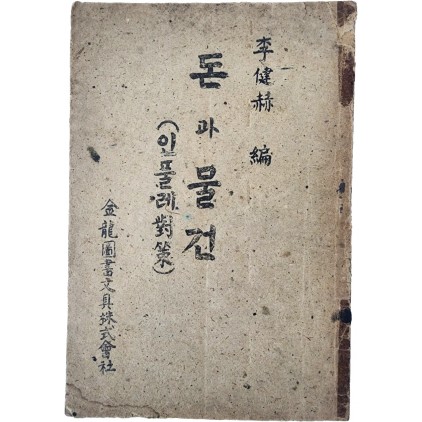 李健赫 編
돈과 물건
(인풀레對策)
金龍圖書文具株式會社